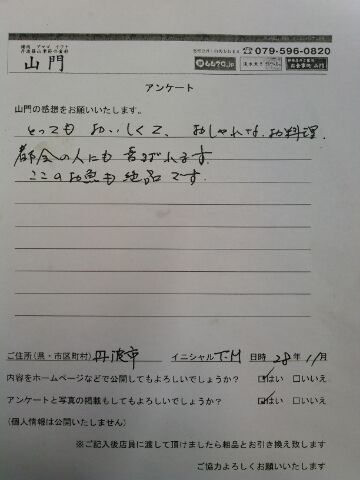 山門
079-596-0820
アンケート
山門の感想をお願いいたします。
とっても おいしくて、おしゃれなお料理.
都会の人にも喜ばれます.
ここのお魚も絶品です.
ご住所(県・市区町村) 丹波市 イニシャル T.M 日時 28年 11月
内容をホームページなどで公開してもよろしいでしょうか? ☑はい □いいえ
アンケートと写真の掲載もしてもよろしいでしょうか? ☑はい □いいえ
(個人情報は公開いたしません)
※ご記入後店員に渡して頂けましたら粗品とお引き換え致します
ご協力よろしくお願いいたします